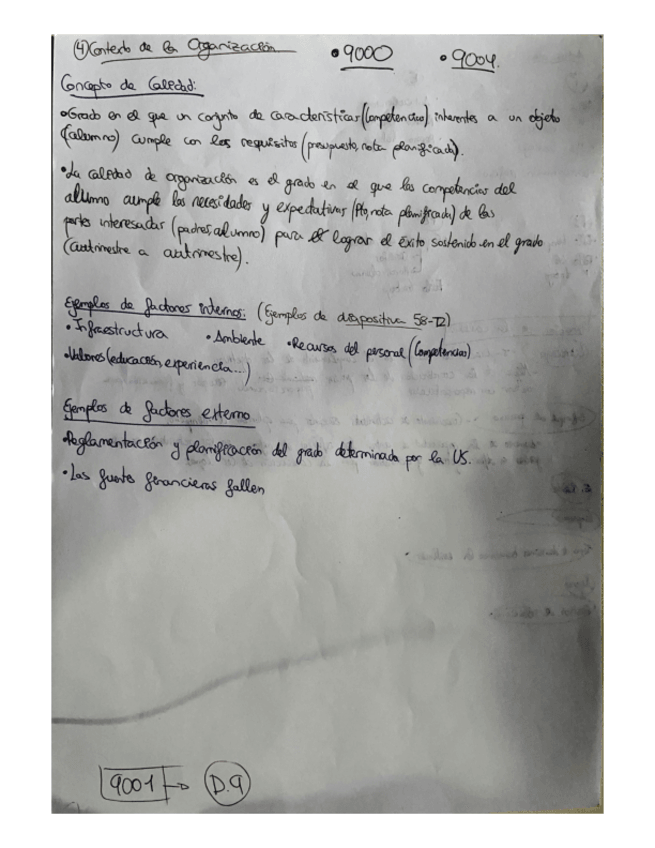 ④ Contexto de la Organización • 9000 • 9004.
Concepto de Calidad:
• Grado en el que un conjunto de características (Competencias) inherentes a un objeto
(alumno) cumple con los requisitos (presupuesto, nota planificada).
• La calidad de organización es el grado en el que las competencias del
alumno cumple las necesidades y expectativas (Pto, nota planificada) de las
partes interesadas (padres, alumno) para lograr el éxito sostenido en el grado
(cuatrimestre a cuatrimestre).
Ejemplos de factores internos: (Ejemplos de diapositiva 58-72)
• Infraestructura • Ambiente • Recursos del personal (Competencias)
• Valores (educación, experiencia....)
Ejemplos de factores externo
• Reglamentación y planificación del grado determinada por la US.
• Las fuente financieras fallen
9001 → D.9